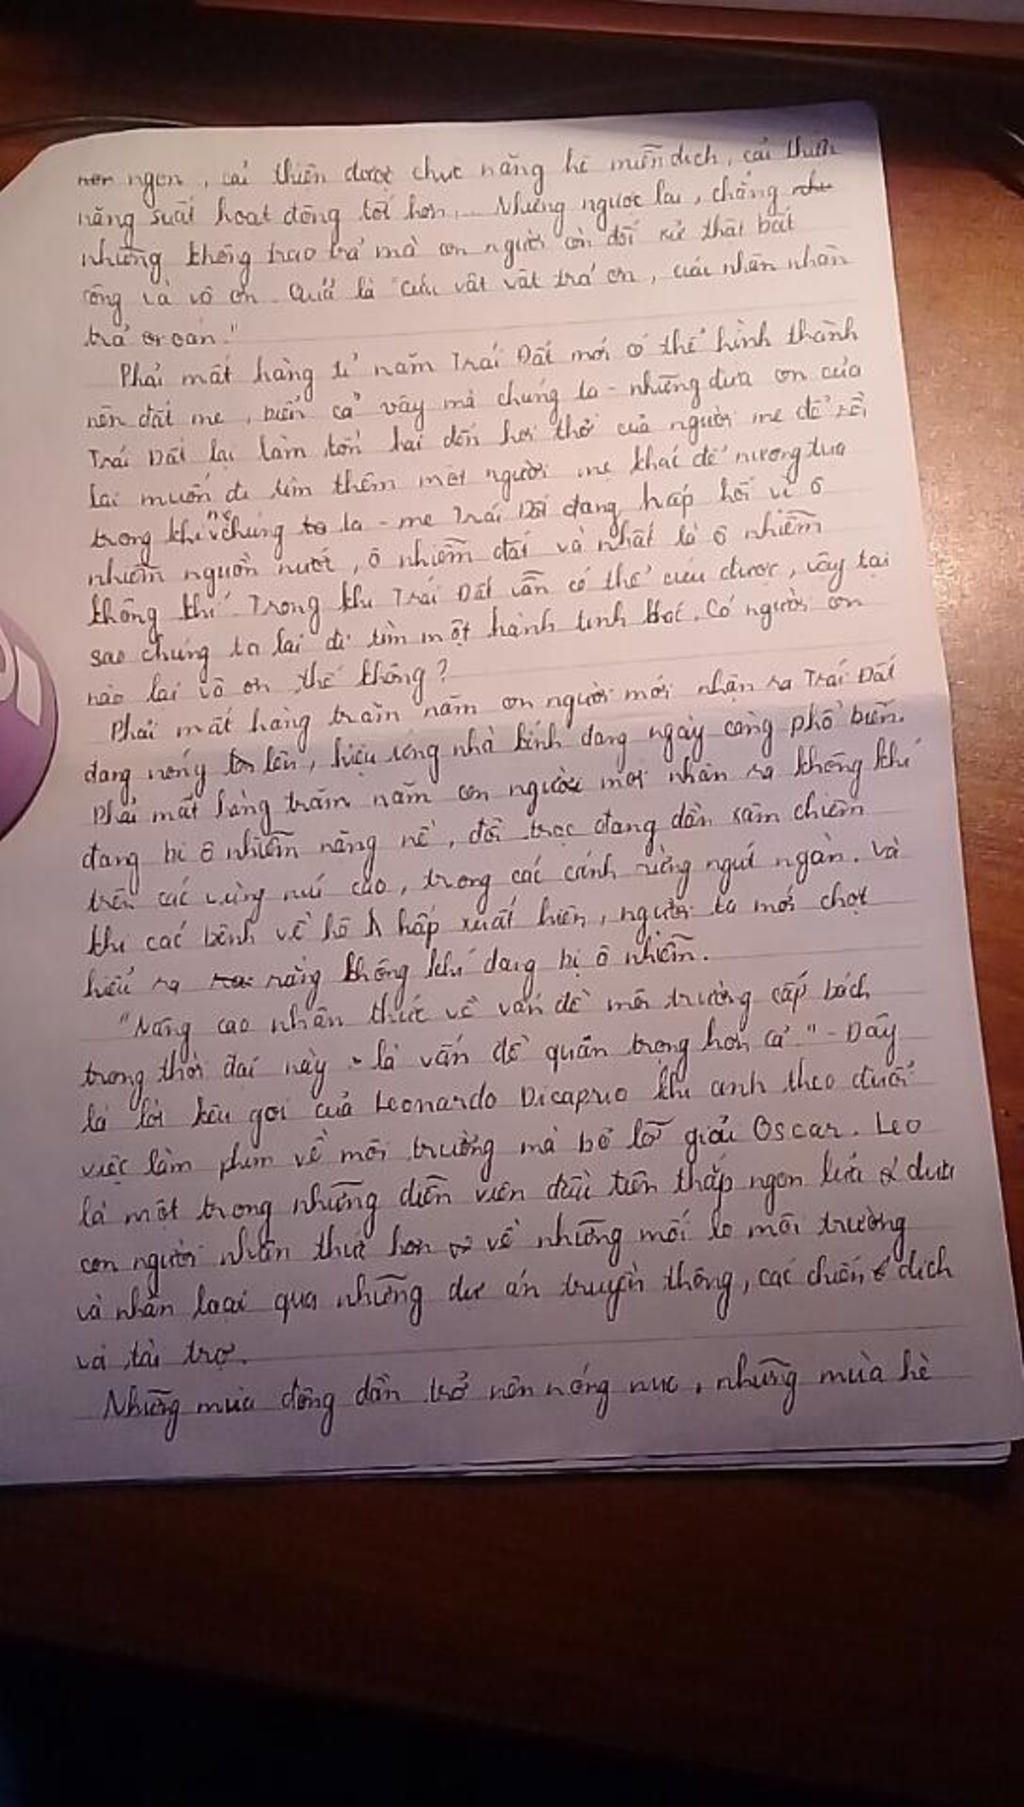 ngon, cải thiện được chức năng hệ miễn dịch, cải thiện
năng suất hoạt động tốt hơn... Nhưng ngược lại, chẳng
những không trao trả mà con người còn đối xử thật bất
công và vô ơn. Quả là "cứu vật vật trả ơn, cứu nhân nhân
trả oán."
Phải mất hàng tỉ năm Trái Đất mới có thể hình thành
nên đất mẹ, biển cả vậy mà chúng ta - những đứa con của
Trái Đất lại làm tổn hại đến hơi thở của người mẹ để rồi
lại muốn đi tìm thêm một người mẹ khác để nương tựa
trong khi mẹ chúng ta - mẹ Trái Đất đang hấp hối vì ô
nhiễm nguồn nước, ô nhiễm đất và nhất là ô nhiễm
không khí. Trong khi Trái Đất vẫn có thể cứu được, vậy tại
sao chúng ta lại đi tìm một hành tinh khác. Có người con
nào lại vô ơn thế không?
Phải mất hàng trăm năm con người mới nhận ra Trái Đất
đang nóng lên, hiệu ứng nhà kính đang ngày càng phổ biến.
Phải mất hàng trăm năm con người mới nhận ra không khí
đang bị ô nhiễm nặng nề, đồi trọc đang dần xâm chiếm
trên các vùng núi cao, trong các cánh rừng ngút ngàn. Và
khi các bệnh về hô hấp xuất hiện, người ta mới chợt
hiểu ra rằng không khí đang bị ô nhiễm.
"Nâng cao nhận thức về vấn đề môi trường cấp bách
trong thời đại này - là vấn đề quan trọng hơn cả" - Đây
là lời kêu gọi của Leonardo Dicaprio khi anh theo đuổi
việc làm phim về môi trường mà bỏ lỡ giải Oscar. Leo
là một trong những diễn viên đầu tiên thắp ngọn lửa đưa
con người nhận thức hơn về những mối lo môi trường
và nhân loại qua những dự án truyền thông, các chiến dịch
và tài trợ.
Những mùa đông dần trở nên nóng nực, những mùa hè